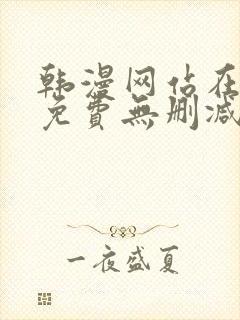 韩漫网佔在
免費無删减
一夜盛夏